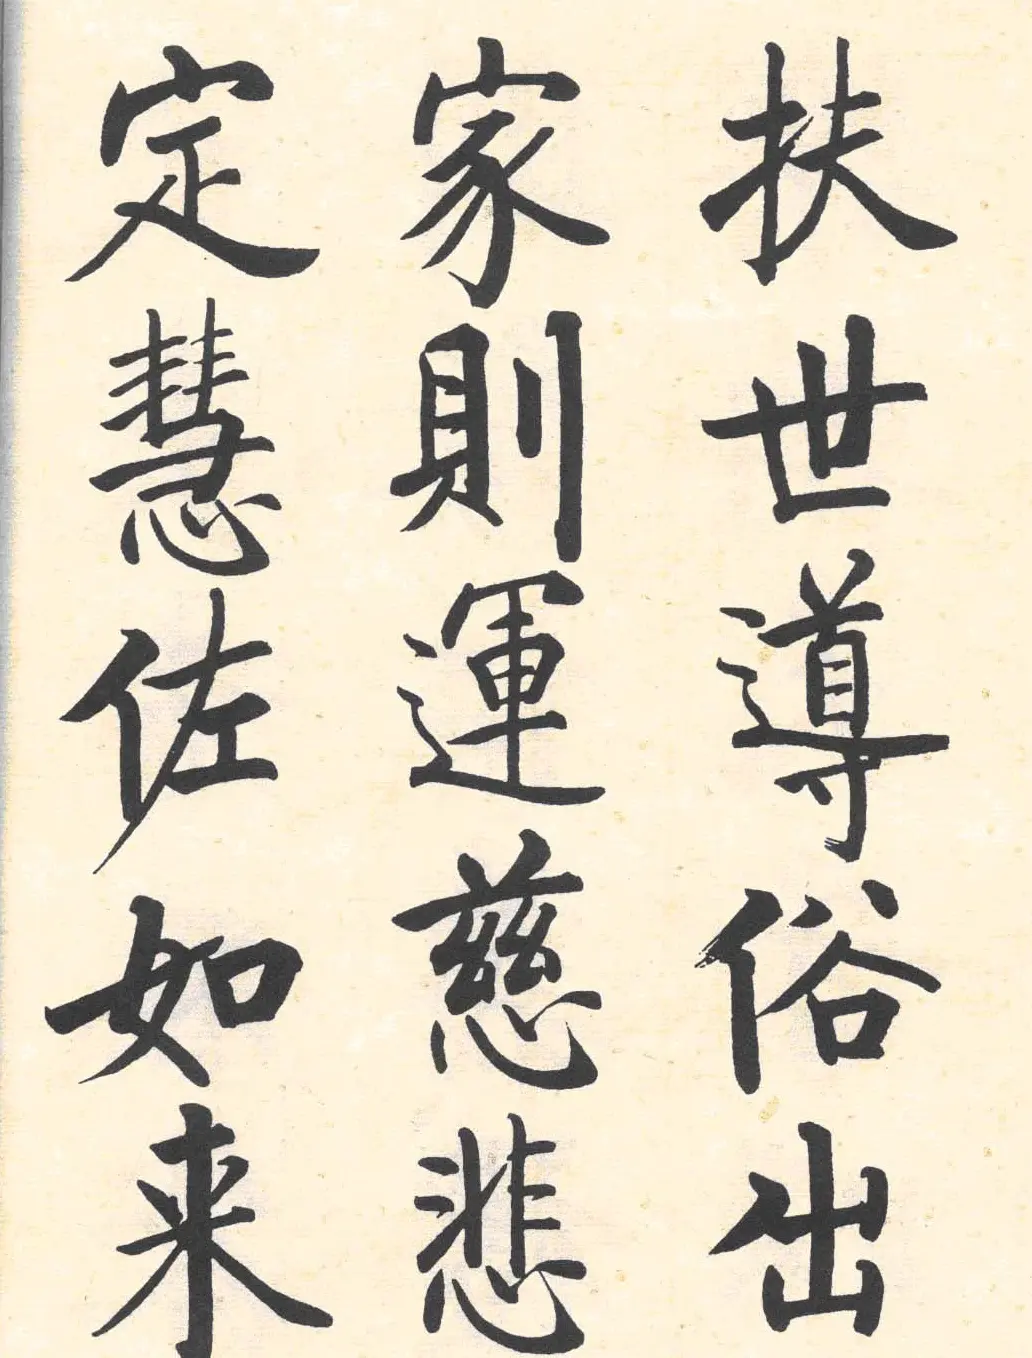 扶世導俗出
家則運慈悲
定慧佐如来